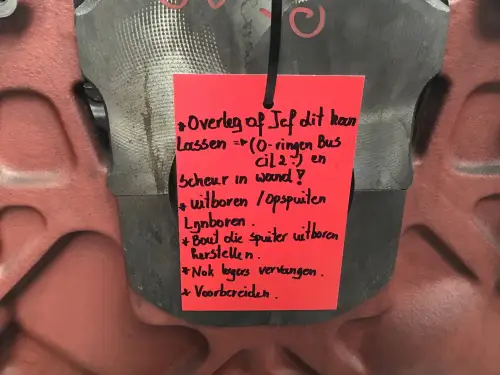 * Overleg of Jef dit kan
Lassen => (O-ringen Bus
cil 2 ?) en
Scheur in wand !
* uitboren / opspuiten
Lijnboren.
* Bout die spuiter uitboren
herstellen.
* Nok lagers vervangen.
* Voorbereiden.